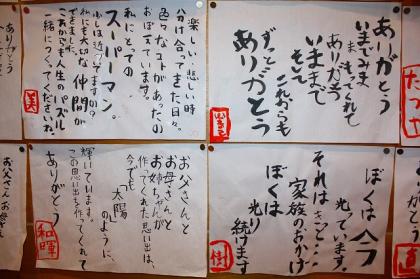 ありがとう
いままで
そして
これからも
ずっとずっと
ありがとう
楽しい、悲しい時
分け合ってきた日々。
色々なコトがあったの
おぼえています。
私にとっての
スーパーマン。
少しは近づけてますか？
私にも大切な仲間が
できました。
これからも人生のパズル
一緒につくってくださいね。
美
ありがとう
ぼくは
光っています
それはきっと・・・
家族のおかげ
ぼくは
光り
続けます
樹
お父さんと
お母さんと
お姉ちゃんが
作ってくれた思い出は、
今でも
「太陽」のように、
輝いています。
この思い出を作ってくれて
ありがとう
和暉